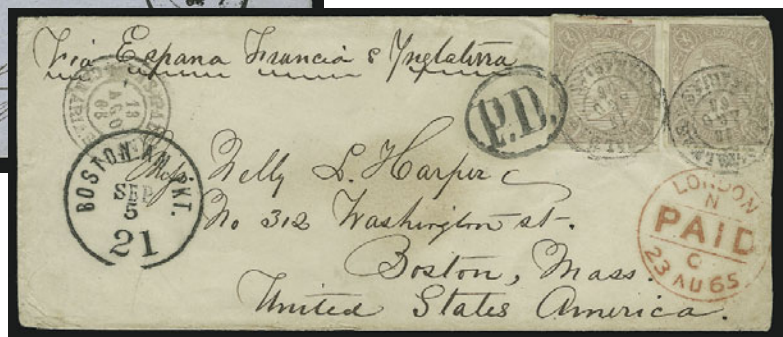 Via España Francia & Ynglaterra
P.D.
13
AGO
65
BOSTON AM. PKT.
SEP
5
21
Miss Nelly L. Harper
No 312 Washington st.
Boston, Mass.
United States America.
LONDON
N
PAID
C
23 AU 65